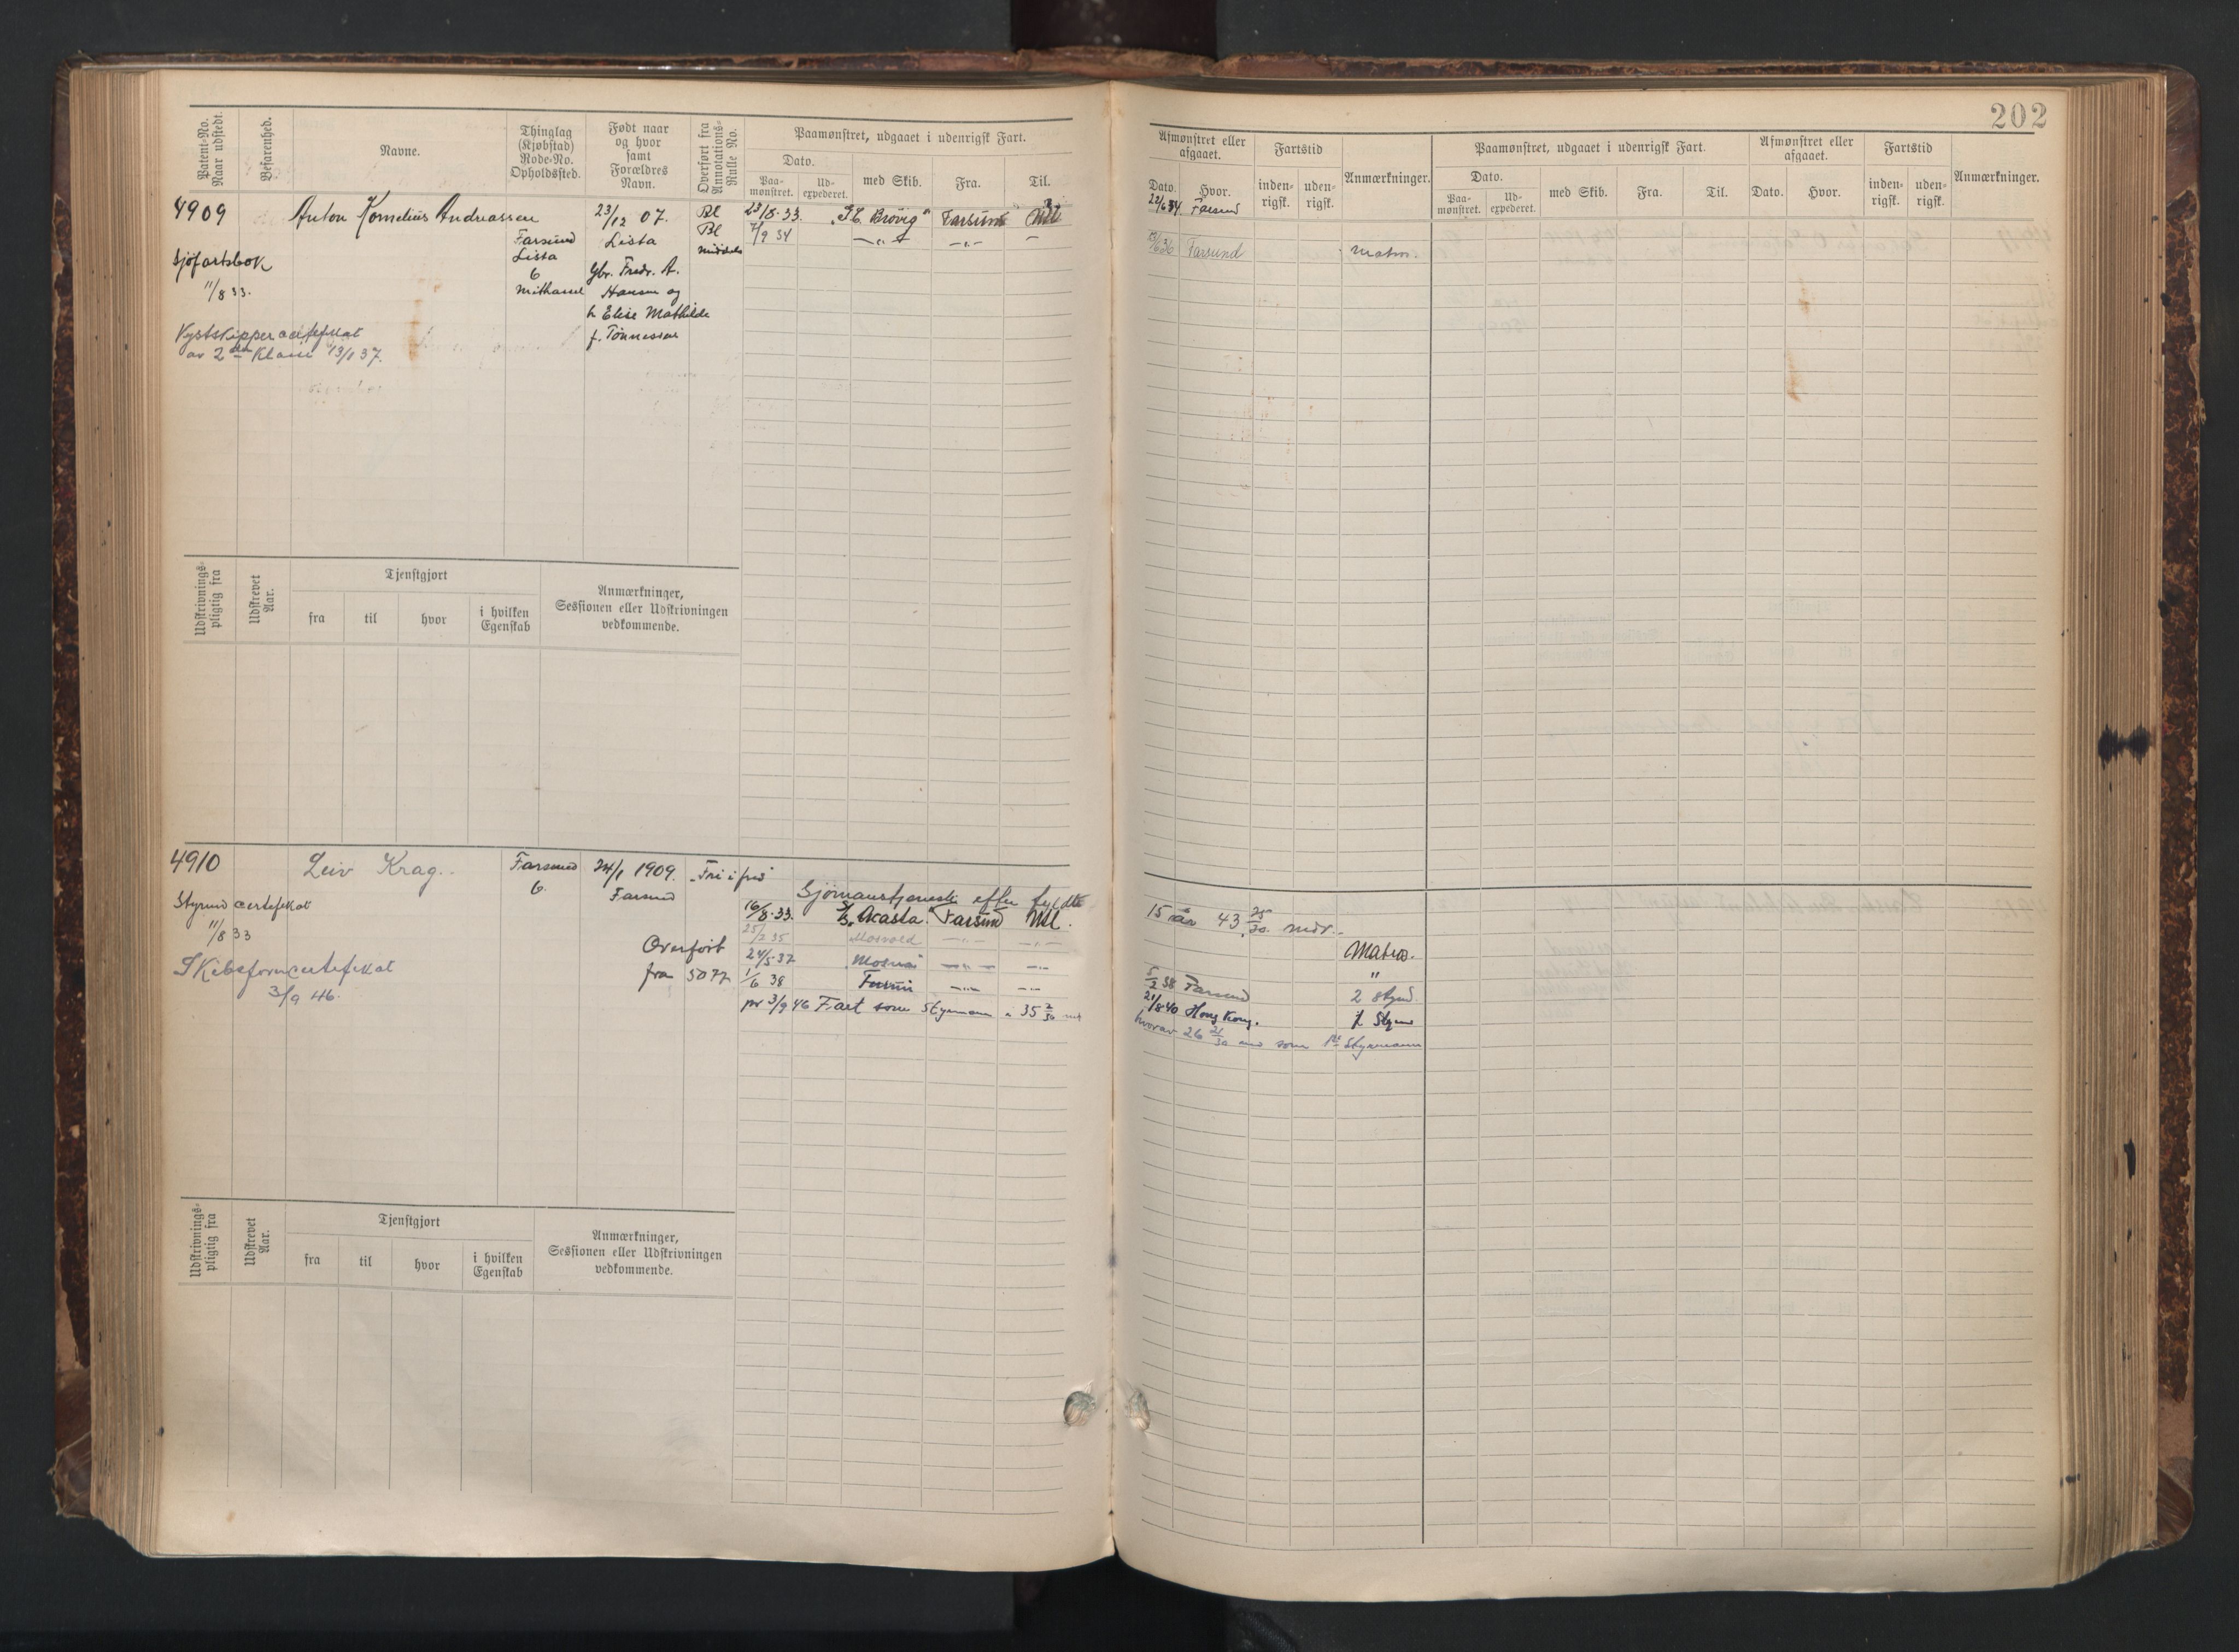 202
Patent-No. Naar udstedt.
Befarenhed.
Navne.
Thinglag (Kjøbstad) Rode-No. Opholdssted.
Født naar og hvor samt Forældres Navn.
Overført fra Annotations-Rulle No.
Paamønstret, udgaaet i udenrigsk Fart.
Dato.
Paa-mønstret.
Ud-expederet.
med Skib.
Fra.
Til.
Afmønstret eller afgaaet.
Dato.
Hvor.
Fartstid
inden-rigsk.
uden-rigsk.
Anmærkninger.
Paamønstret, udgaaet i udenrigsk Fart.
Dato.
Paa-mønstret.
Ud-expederet.
med Skib.
Fra.
Til.
Afmønstret eller afgaaet.
Dato.
Hvor.
Fartstid
inden-rigsk.
uden-rigsk.
Anmærkninger.
4909 Anton Kornelius Andreassen 23/12 07. Bl 23/8-33. Farsund Udl 22/6 34 Farsund
Farsund Lista Bl 7/9 34 Farsund Matros.
Sjøfartsbok Lista
6 Gbr. Fredr. A.
11/8 33. Hansen og
h. Elise Mathilde
f. Tønnessen
Kystskippercertefikat
av 2den Klasse 13/1 37.
Udskrivnings-pligtig fra
Udskrevet Aar.
Tjenstgjort
fra
til
hvor
i hvilken Egenskab
Anmærkninger, Sessionen eller Udskrivningen vedkommende.
4910 Leiv Krag. Farsund 24/1 1909. "Fri i fred"
6. Farsund
Sjømanstjeneste efter fyldte
15 år 43 25/30 mdr.
Styrmd certefikat
11/8 33
16/8-33. Acasta" Farsund Udl. Matros.
Overført 25/2 35 "
fra 5077 24/5 37 "Mosnes" 5/2 38 Farsund 2 Styrmd.
Skibsførercertefikat
3/9 46.
1/6 38 21/8 40 Hong Kong.
pr 3/9 46 Fart som Styrmann 35 2/30
hvorav 26 21/30 som 1ste Styrmann
Udskrivnings-pligtig fra
Udskrevet Aar.
Tjenstgjort
fra
til
hvor
i hvilken Egenskab
Anmærkninger, Sessionen eller Udskrivningen vedkommende.